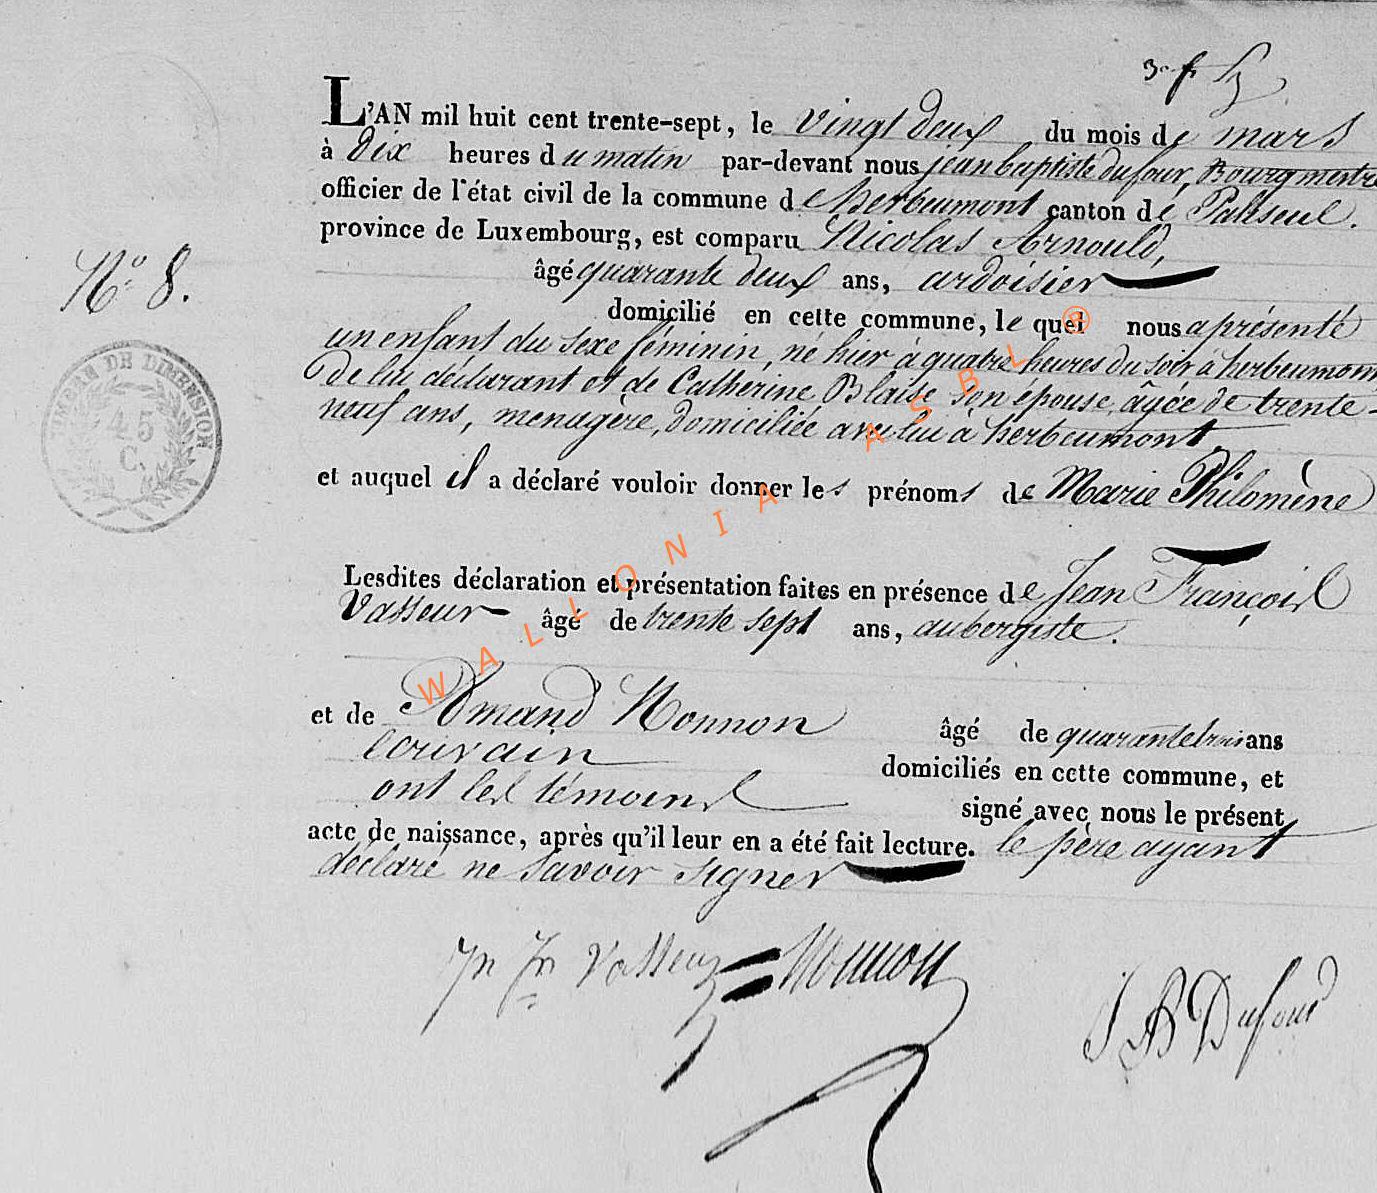 3e f
L'AN mil huit cent trente-sept, le vingt deux du mois de mars
à dix heures du matin par-devant nous jean baptiste dufour, Bourgmestre
officier de l'état civil de la commune de herbeumont canton de Paliseul.
province de Luxembourg, est comparu Nicolas Arnould,
âgé quarante deux ans, ardoisier
No. 8.
domicilié en cette commune, le quel nous a présenté
un enfant du sexe féminin, né hier à quatre heures du soir à herbeumont
De lui déclarant et de Catherine Blaise son épouse, âgée de trente-
neuf ans, menagère, domiciliée avec lui à herbeumont
TIMBRE DE DIMENSION
45
C.
et auquel il a déclaré vouloir donner les prénoms de Marie Philomène
Lesdites déclaration et présentation faites en présence de Jean François
Vasseur âgé de trente sept ans, aubergiste.
et de Amand Nonnon âgé de quarante trois ans
écrivain
domiciliés en cette commune, et
ont les témoins signé avec nous le présent
acte de naissance, après qu'il leur en a été fait lecture. le père ayant
déclaré ne savoir signer
Jn Fn Vasseur Nonnon
J B Dufour
WALLONIA ASBL ®